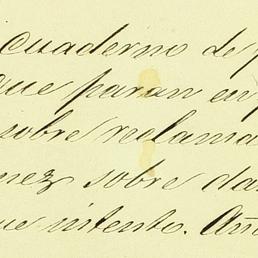 Cuaderno de p
que paran en p
sobre reclama
nez sobre da
ue intento. Año